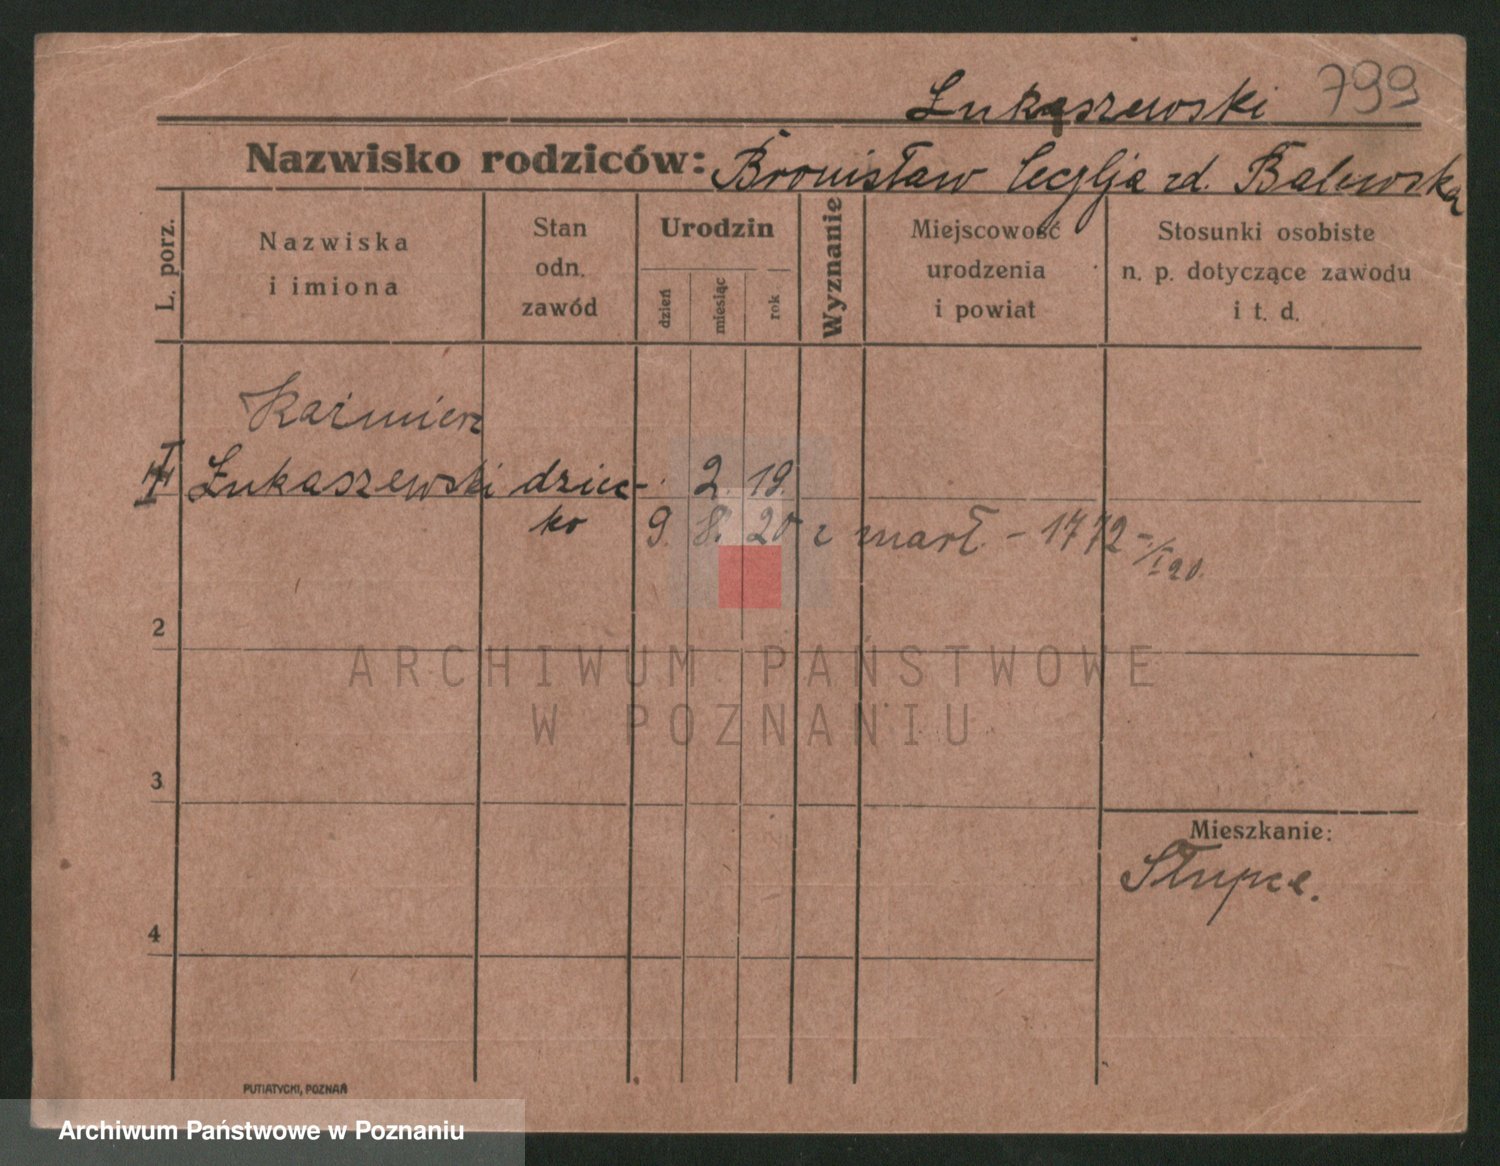 Łukaszewski 799
Nazwisko rodziców: Bronisław Cecylja zd. Balewska
L. porz.
Nazwiska
i imiona
Stan
odn.
zawód
Urodzin
dzień
miesiąc
rok
Wyznanie
Miejscowość
urodzenia
i powiat
Stosunki osobiste
n. p. dotyczące zawodu
i t. d.
Kaźmierz
Łukaszewski dziec- 2. 19.
ko 9. 8. 20 zmarł. - 1772 -/I 20.
2
ARCHIWUM PAŃSTWOWE
W POZNANIU
3
Mieszkanie:
Słupca.
4
PUTIATYCKI, POZNAŃ
Archiwum Państwowe w Poznaniu